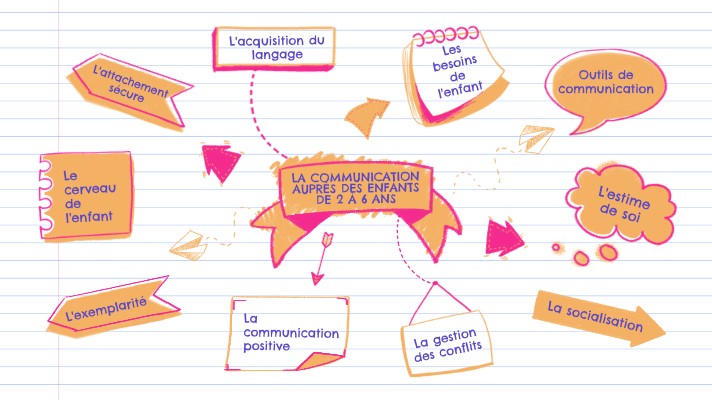 L'acquisition du
langage
Les
besoins
de
l'enfant
Outils de
communication
L'attachement
sécure
Le
cerveau
de
l'enfant
LA COMMUNICATION
AUPRÈS DES ENFANTS
DE 2 À 6 ANS
L'estime
de soi
L'exemplarité
La
communication
positive
La gestion
des conflits
La socialisation